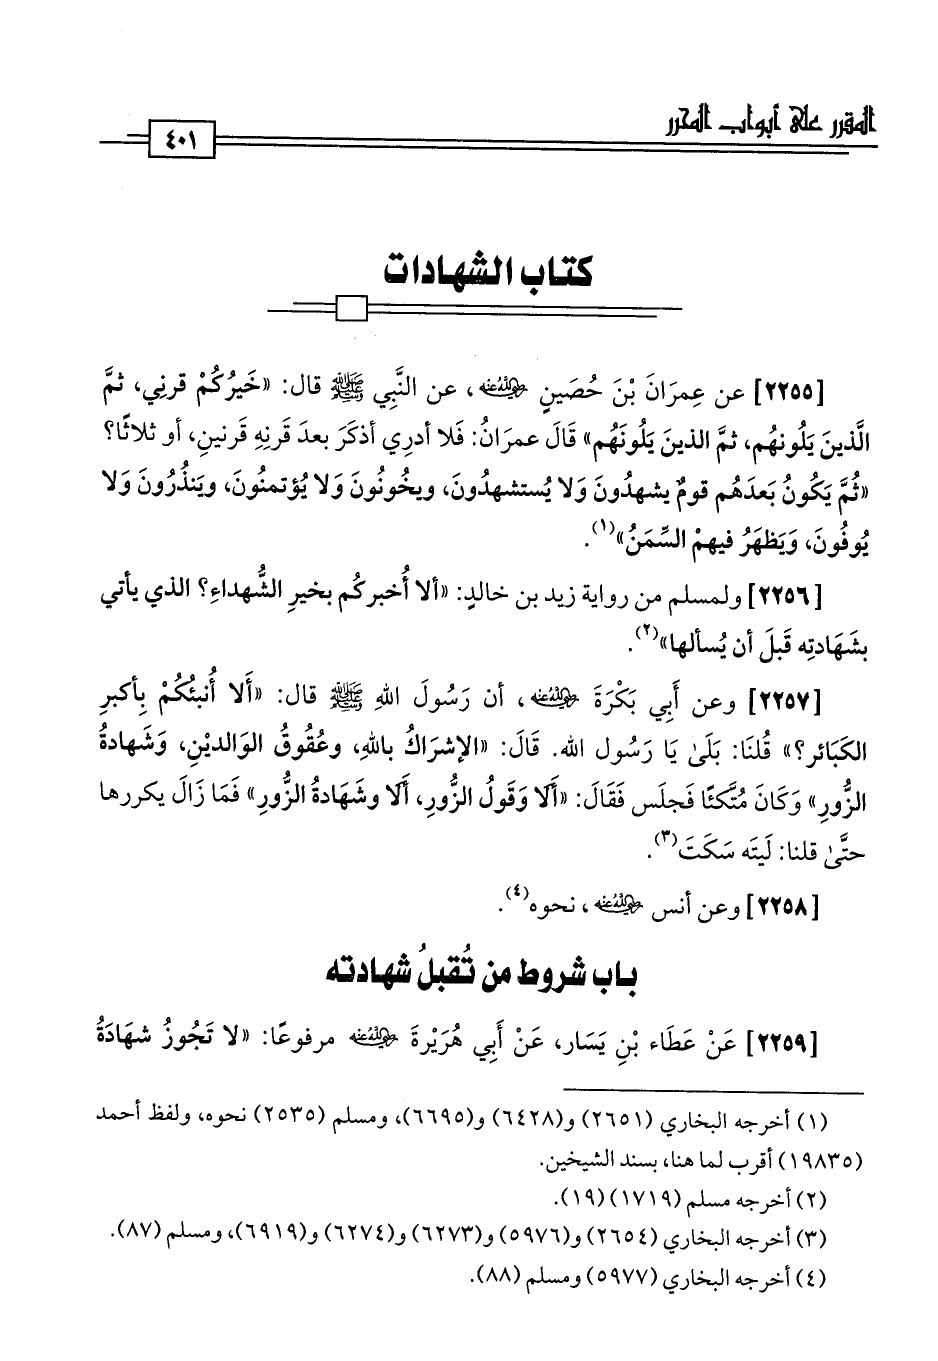 المقرر على أبواب المحرر
٤٠١
كتاب الشهادات
[٢٢٥٥] عن عِمرَانَ بْنَ حُصَينٍ ﵁، عن النَّبِي ﷺ قال: «خَيرُكُمْ قرني، ثمَّ
الَّذينَ يَلُونهُم، ثمَّ الذينَ يَلُونَهُم» قَالَ عمرَانُ: فَلا أدرِي أذكَرَ بعدَ قَرنِهِ قَرنينِ، أو ثلاثًا؟
«ثُمَّ يَكُونُ بَعدَهُم قومٌ يشهدُونَ وَلا يُستشهدُونَ، ويخُونُونَ وَلا يُؤتمنُونَ، ويَنذُرُونَ وَلا
يُوفُونَ، وَيَظهَرُ فيهمْ السِّمَنُ»(١).
[٢٢٥٦] ولمسلم من رواية زيد بن خالدٍ: «ألا أُخبركُم بخيرِ الشُّهداءِ؟ الذي يأتي
بشَهَادتِه قَبلَ أن يُسألها»(٢).
[٢٢٥٧] وعن أَبِي بَكْرَةَ ﵁، أن رَسُولَ اللهِ ﷺ قال: «أَلا أُنبئُكُمْ بِأكبرِ
الكَبَائر؟» قُلنَا: بَلَىٰ يَا رَسُول الله. قَالَ: «الإشرَاكُ باللهِ، وعُقُوقُ الوَالديْنِ، وشَهادةُ
الزُّورِ» وَكَانَ مُتَّكئًا فَجلَس فَقَالَ: «أَلَا وَقَولُ الزُّورِ، أَلَا وشَهَادةُ الزُّورِ» فَمَا زَالَ يكررها
حتَّىٰ قلنا: لَيتَه سَكَتَ(٣).
[٢٢٥٨] وعن أنس ﵁، نحوه(٤).
باب شروط من تُقبلُ شهادته
[٢٢٥٩] عَنْ عَطَاء بْنِ يَسَار، عَنْ أَبِي هُرَيْرةَ ﵁ مرفوعًا: «لا تَجُوزُ شهَادَةُ
(١) أخرجه البخاري (٢٦٥١) و(٦٤٢٨) و(٦٦٩٥)، ومسلم (٢٥٣٥) نحوه، ولفظ أحمد
(١٩٨٣٥) أقرب لما هنا، بسند الشيخين.
(٢) أخرجه مسلم (١٧١٩) (١٩).
(٣) أخرجه البخاري (٢٦٥٤) و(٥٩٧٦) و(٦٢٧٣) و(٦٢٧٤) و(٦٩١٩)، ومسلم (٨٧).
(٤) أخرجه البخاري (٥٩٧٧) ومسلم (٨٨).